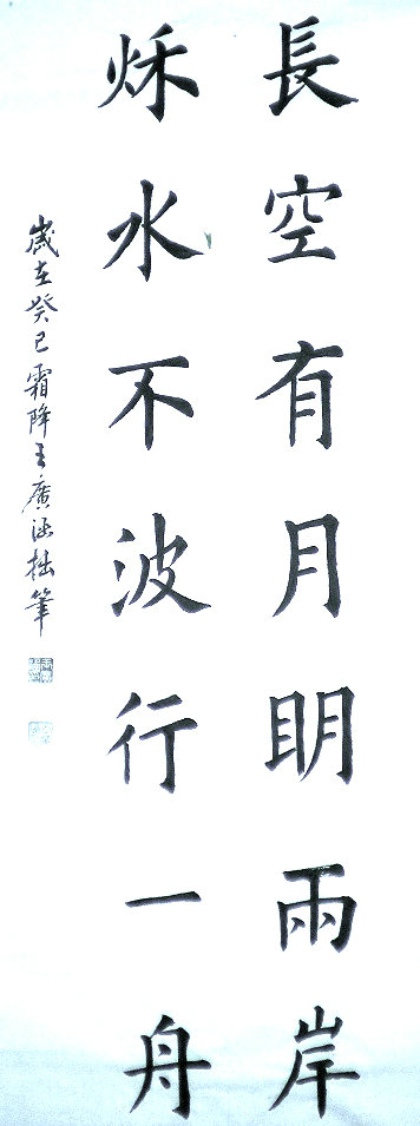 長空有月眀兩岸
秌水不波行一舟
歲在癸巳霜降王廣涵拙筆